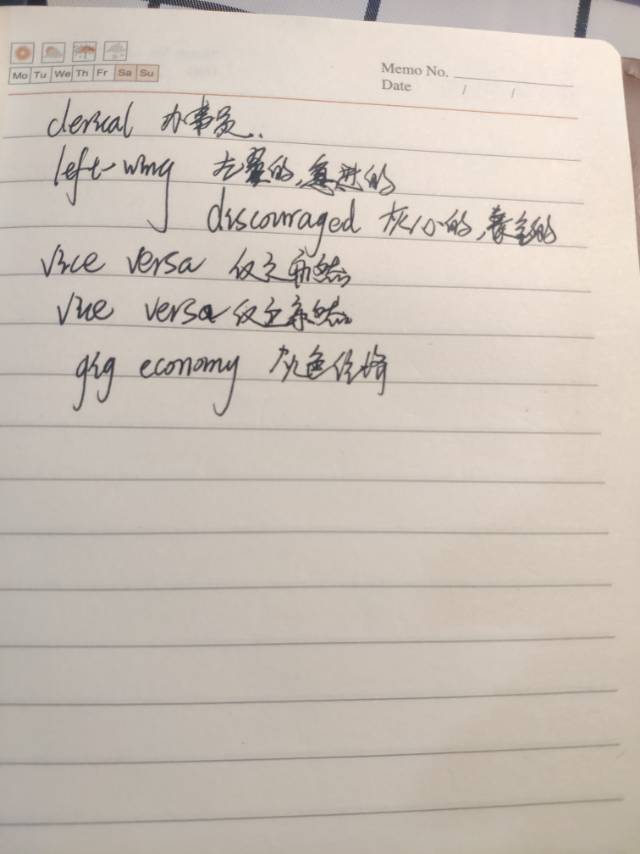 Mo Tu We Th Fr Sa Su
Memo No.
Date / /
clerical 办事员.
left-wing 左翼的,激进的
discouraged 灰心的,
vice versa 反之亦然
vice versa 反之亦然
gig economy 灰色经济